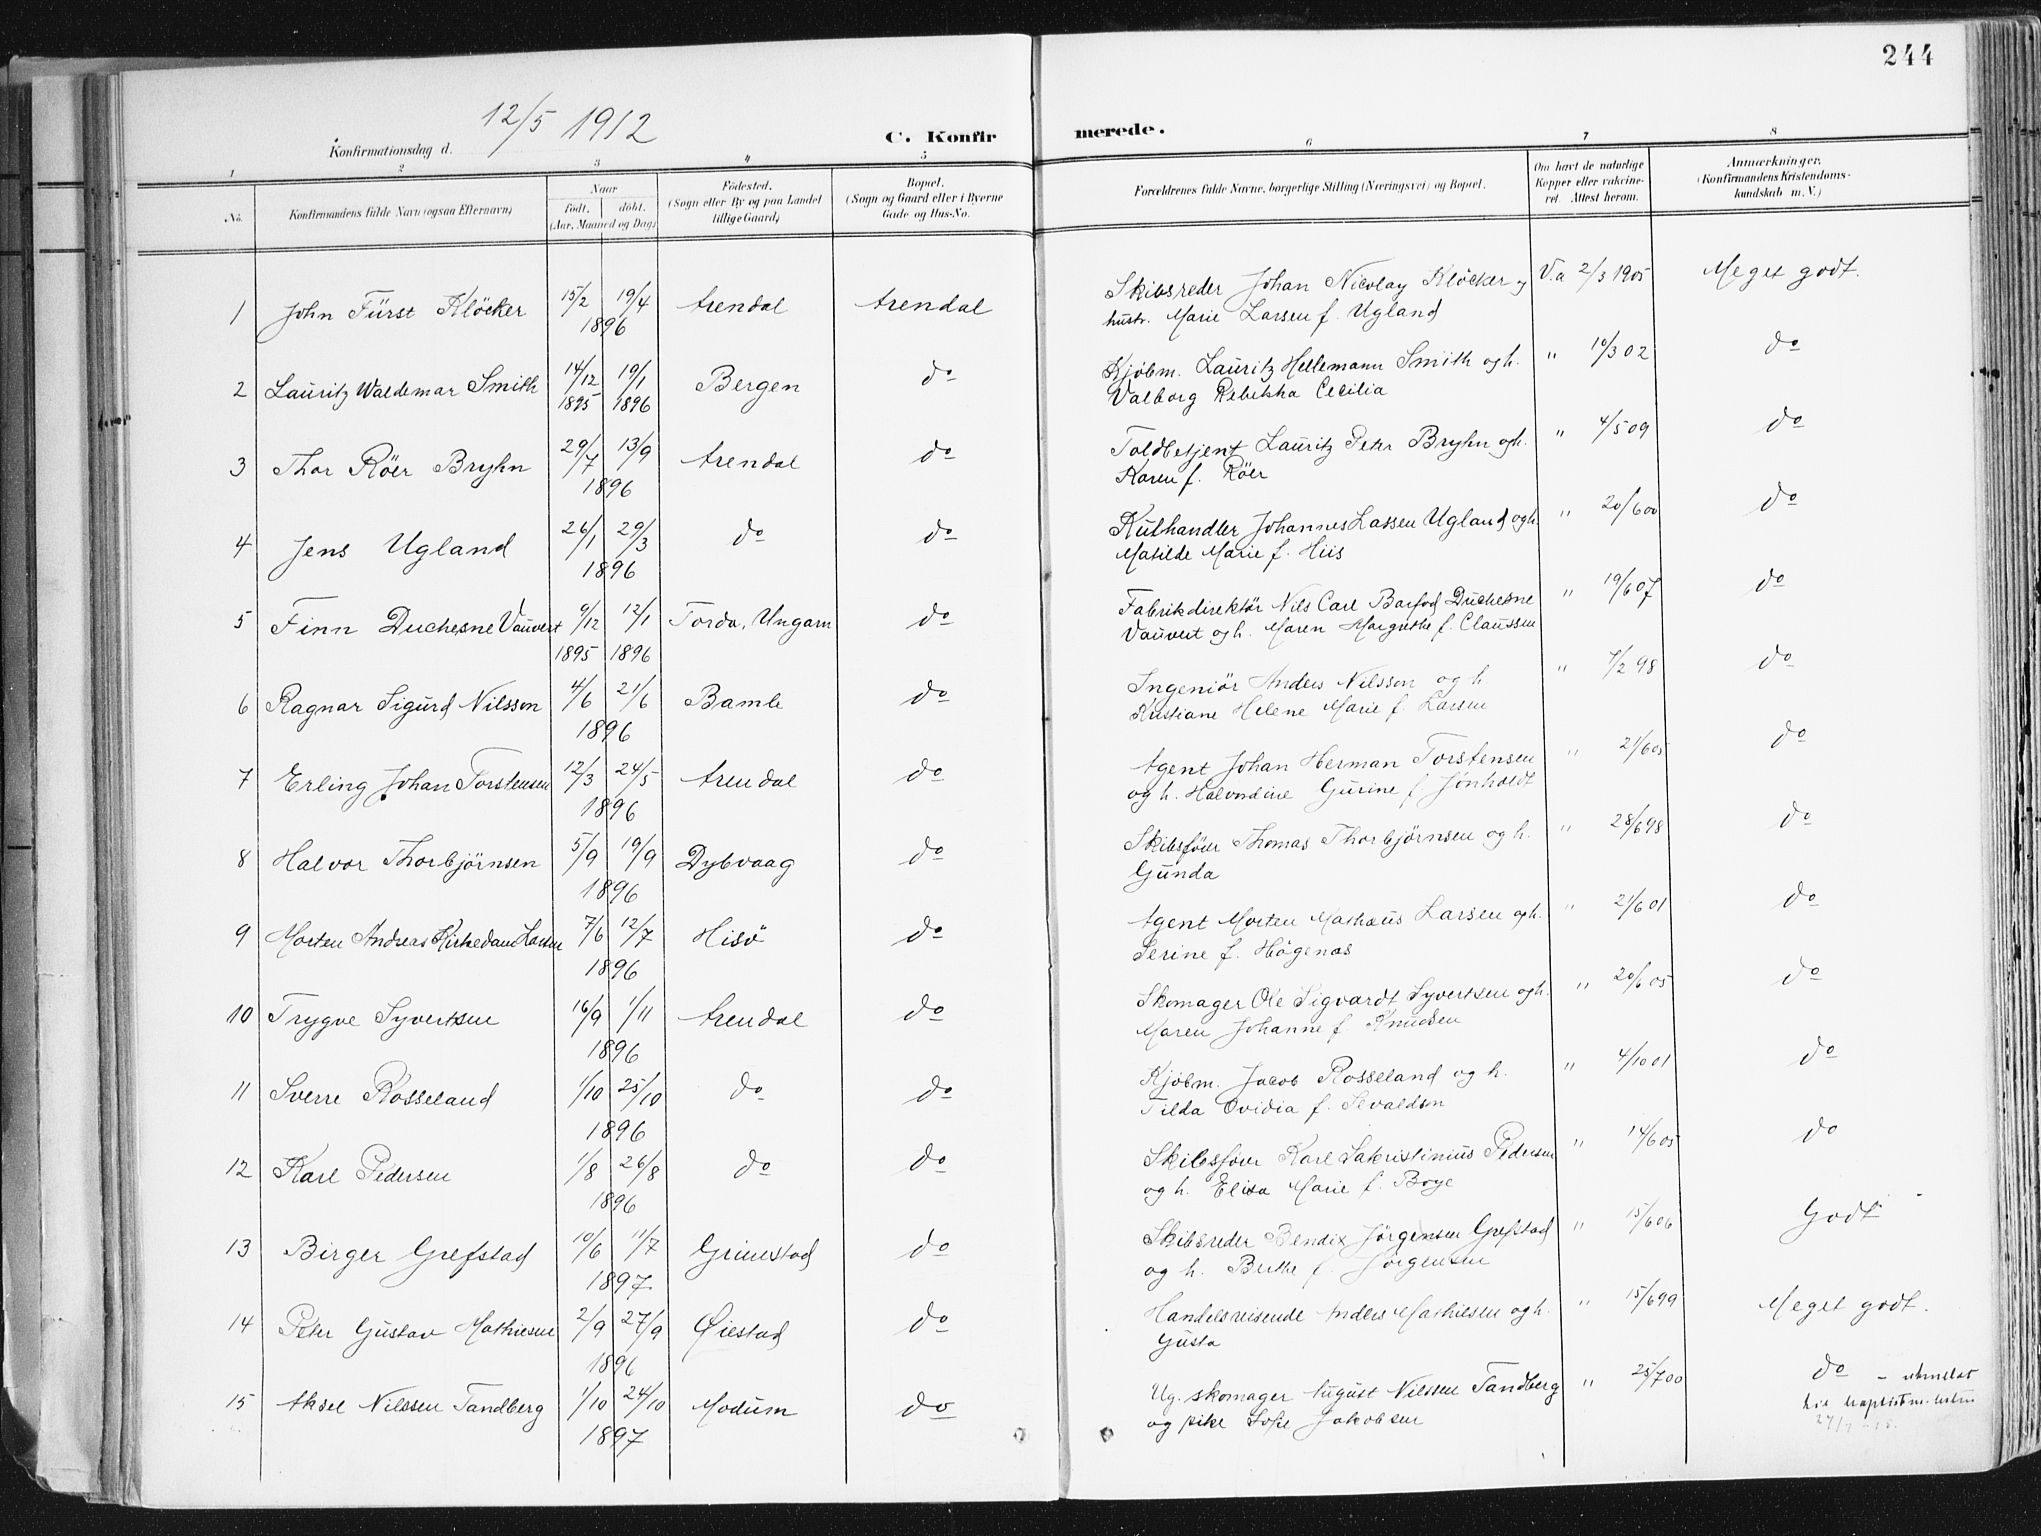 244
12/5 1912
Konfirmationsdag d.
C. Konfirmerede.
1 2 3 4 5 6 7 8
No.
Konfirmandens fulde Navn (ogsaa Efternavn)
Naar
født. døbt.
(Aar, Maaned og Dag)
Fødested.
(Sogn eller By og paa Landet
tillige Gaard)
Bopæl.
(Sogn og Gaard eller i Byerne
Gade og Hus-No.
Forældrenes fulde Navne, borgerlige Stilling (Næringsvei) og Bopæl.
Om havt de naturlige
Kopper eller vakcine-
ret. Attest herom.
Anmærkninger.
(Konfirmandens Kristendoms-
kundskab m. V.)
1 John Fürst Klöcker 15/2 19/4 Arendal Arendal Skibsreder Johan Nicolay Klöcker og V.a 2/3 1905 Meget godt.
1896 hustr. Marie Larsen f. Ugland
2 Lauritz Waldemar Smith 14/12 19/1 Bergen do Kjøbm. Lauritz Hellemann Smith og h. " 10/3 02 do
1895 1896 Valborg Rebekka Cecilia
3 Thor Röer Bryhn 29/7 13/9 Arendal do Toldbetjent Lauritz Peter Bryhn og h. " 4/5 09 do
1896 Karen f. Röer
4 Jens Ugland 26/1 29/3 do do Kulhandler Johannes Lassen Ugland og h. " 20/6 00 do
1896 Matilde Marie f. Hiis
5 Finn Duchesne Vauvert 9/12 12/1 Torda, Ungarn do Fabrikdirektör Nils Carl Barfod Duchesne " 19/6 07 do
1895 1896 Vauvert og h. Maren Margrethe f. Claussen
6 Ragnar Sigurd Nilsson 4/6 21/6 Bamle do Ingeniör Anders Nilsson og h. " 7/2 98 do
1896 Kristiane Helene Marie f. Larsen
7 Erling Johan Torstensen 12/3 24/5 Arendal do Agent Johan Herman Torstensen " 21/6 05 do
1896 og h. Halvordine Gurine f. Jónholdt
8 Halvor Thorbjörnsen 5/9 19/9 Dybvaag do Skibsfører Thomas Thorbjörnsen og h. " 28/6 98 do
1896 Gunda
9 Morten Andreas Kirkedam Larsen 7/6 12/7 Hisö do Agent Morten Mathæus Larsen og h. " 21/6 01 do
1896 Serine f. Högenæs
10 Trygve Syvertsen 16/9 1/11 Arendal do Skomager Ole Sigvardt Syvertsen og h. " 20/6 05 do
1896 Maren Johanne f. Knudsen
11 Sverre Rosseland 1/10 25/10 do do Kjøbm. Jacob Rosseland og h. " 4/10 01 do
1896 Tilda Ovidia f. Sevaldsen
12 Karl Pedersen 1/8 26/8 do do Skibsfører Karl Sakristinius Pedersen " 14/6 05 do
1896 og h. Elisa Marie f. Boye
13 Birger Grefstad 10/6 11/7 Grimstad do Skibsreder Bendix Jörgensen Grefstad " 15/6 06 Godt
1897 og h. Berthe f. Jörgensen
14 Peter Gustav Mathiesen 2/9 27/9 Øiestad do Handelsreisende Anders Mathiesen og h. " 15/6 99 Meget godt.
1896 Gusta
15 Aksel Nilssen Tandberg 1/10 24/10 Modum do Ug. skomager August Nilssen Tandberg " 25/7 00 do - utmeldt
1897 og pike Sofie Jakobsen til baptistm.